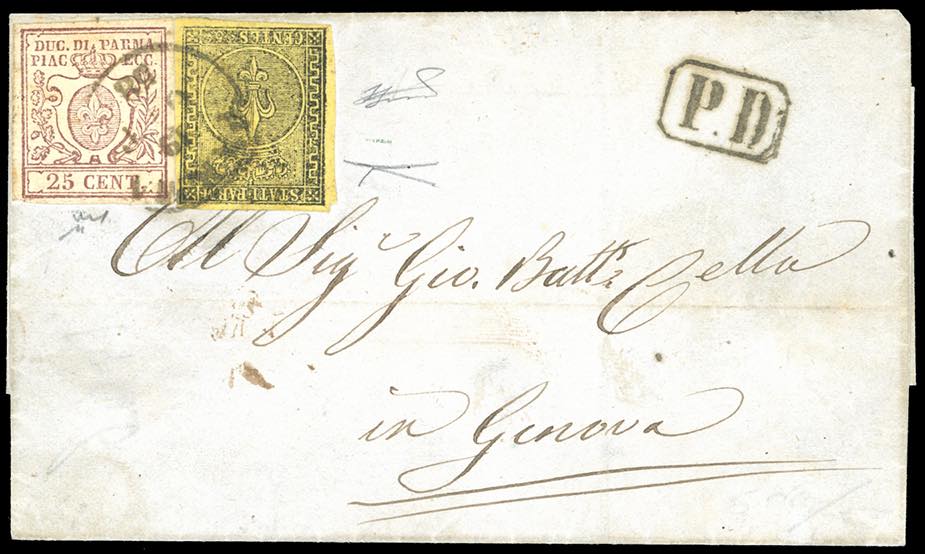 DUC. DI PARMA
PIAC. ECC.
25 CENT.
CENTES
STATI PARM
P.D
Al Sigr Gio. Batta Cella
in Genova